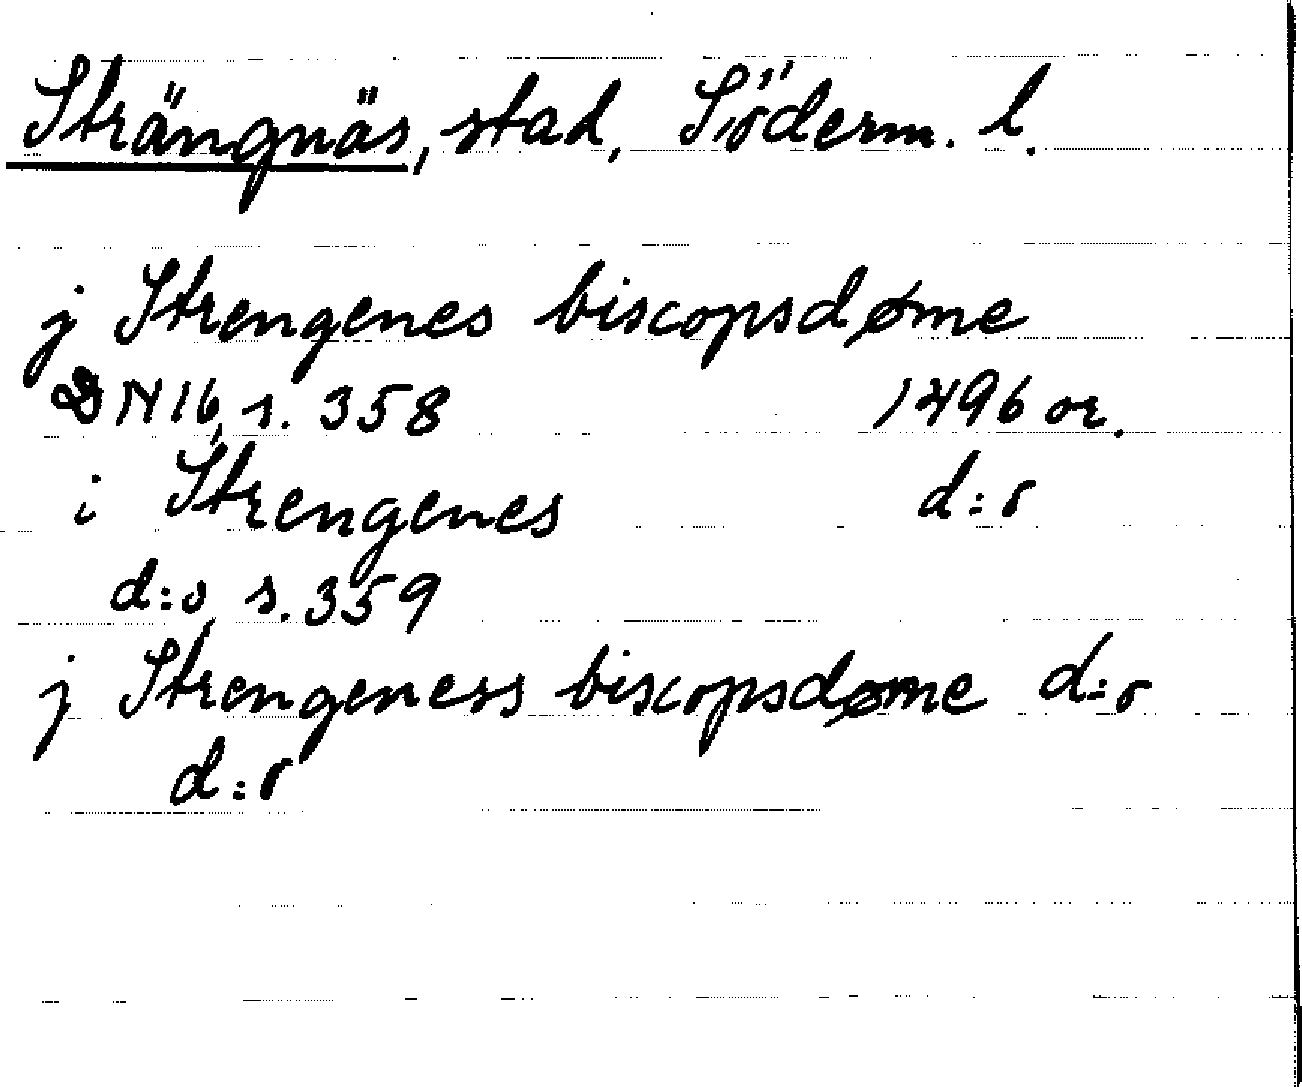 Strängnäs, stad, Söderm. l.
j Strengenes biscopsdøme
DN 16, s. 358 1496 or.
i Strengenes d:o
d:o s. 359
j Strengeness biscopsdøme d:o
d:o